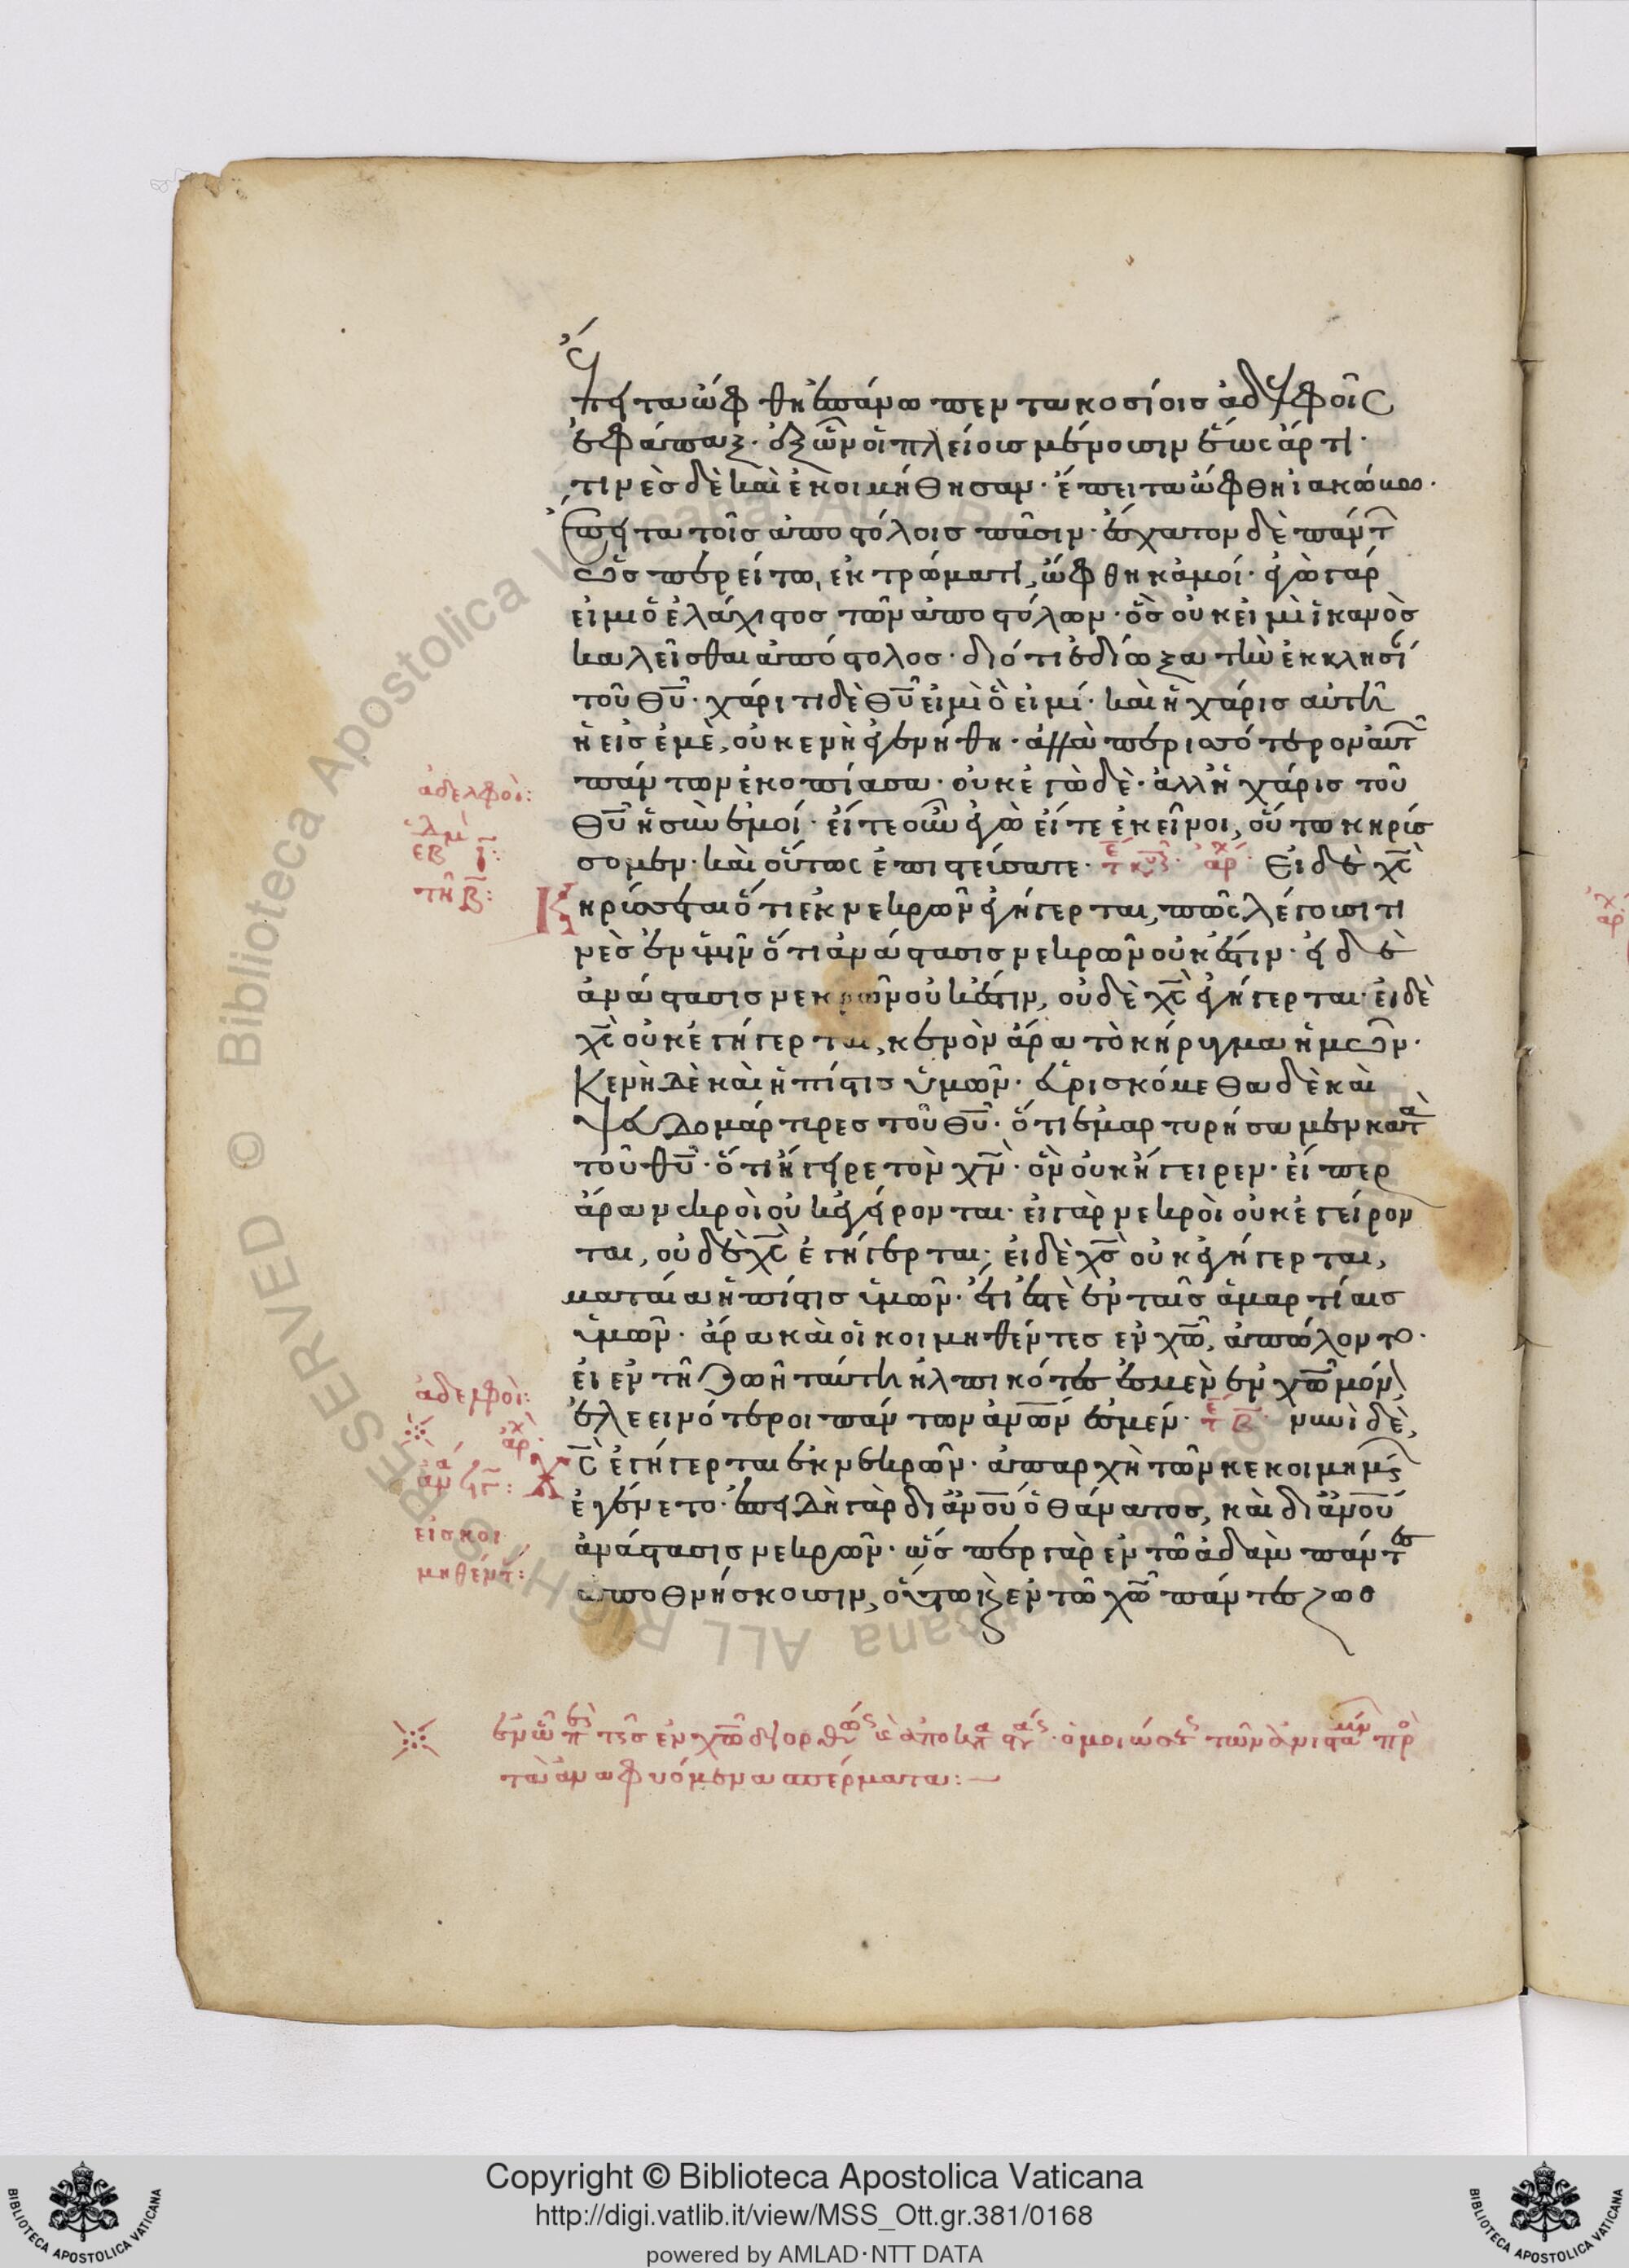 ἔπειτα ὤφθη ἐπάνω πεντακοσίοις ἀδελφοῖς
ἐφάπαξ· ἐξ ὧν οἱ πλείους μένουσιν ἕως ἄρτι·
τινὲς δὲ καὶ ἐκοιμήθησαν· ἔπειτα ὤφθη ἰακώβω·
ἔπειτα τοῖς ἀποστόλοις πᾶσιν· ἔσχατον δὲ πάντ
ὡσπερεί τω, ἐκτρώματι, ὤφθη κἀμοί· ἐγὼ γάρ
εἰμι ὁ ἐλάχιστος τῶν ἀποστόλων· ὃς οὐκ εἰμὶ ἱκανὸς
καλεῖσθαι ἀπόστολος· διότι ἐδίωξα τὴν ἐκκλησί
τοῦ θυ· χάριτι δὲ θυ εἰμὶ ὅ εἰμί· καὶ ἡ χάρις αὐτῆ
ἡ εἰς ἐμὲ, οὐ κενὴ ἐγενήθη· ἀλλὰ περισσότερον αὐτ
πάντων ἐκοπίασα· οὐκ ἐγὼ δὲ· ἀλλ ἡ χάρις τοῦ
θυ ἡ σὺν ἐμοί· εἴτε οὖν ἐγὼ εἴτε ἐκεῖνοι, οὕτω κηρύσ
σομεν· καὶ οὕτως ἐπιστεύσατε· Εἰ δὲ χς
ἀδελφοί:
τῆ β:
κηρύσσεται ὅτι ἐκ νεκρῶν ἐγήγερται, πῶς λέγουσι τι
νὲς ἐν ὑμῖν ὅτι ἀνάστασις νεκρῶν οὐκ ἔστιν· εἰ δὲ
ἀνάστασις νεκρῶν οὐκ ἔστιν, οὐδὲ χς ἐγήγερται· εἰ δὲ
χς οὐκ ἐγήγερται, κενὸν ἄρα τὸ κήρυγμα ἡμῶν·
Κενὴ δὲ καὶ ἡ πίστις ὑμῶν· εὑρισκόμεθα δὲ καὶ
ψευδομάρτυρες τοῦ θυ· ὅτι ἐμαρτυρήσαμεν κατ
τοῦ θυ· ὅτι ἤγειρε τὸν χν· ὃν οὐκ ἤγειρεν· εἴπερ
ἄρα νεκροὶ οὐκ ἐγείρονται· εἰ γὰρ νεκροὶ οὐκ ἐγείρον
ται, οὐδὲ χς ἐγήγερται· εἰ δὲ χς οὐκ ἐγήγερται,
ματαία ἡ πίστις ὑμῶν· ἔτι ἐστὲ ἐν ταῖς ἁμαρτίαις
ὑμῶν· ἄρα καὶ οἱ κοιμηθέντες ἐν χω, ἀπώλοντο·
εἰ ἐν τῆ ζωῆ ταύτη ἠλπικότες ἐσμὲν ἐν χω μόν
ἀδελφοί:
ἐλεεινότεροι πάντων ἀνων ἐσμέν· νυνὶ δὲ,
χς ἐγήγερται ἐκ νεκρῶν· ἀπαρχὴ τῶν κεκοιμημ
ἐγένετο· ἐπειδὴ γὰρ δι ανου ὁ θάνατος, καὶ δι ανου
εἰς κοι
ἀνάστασις νεκρῶν· ὥσπερ γὰρ ἐν τῶ ἀδὰμ πάντες
μηθέντ:
ἀποθνήσκουσιν, οὕτω καὶ ἐν τῶ χω πάντες ζωο
τὰ ἀναφυόμενα σπέρματα:—
Copyright © Biblioteca Apostolica Vaticana
http://digi.vatlib.it/view/MSS_Ott.gr.381/0168
powered by AMLAD·NTT DATA